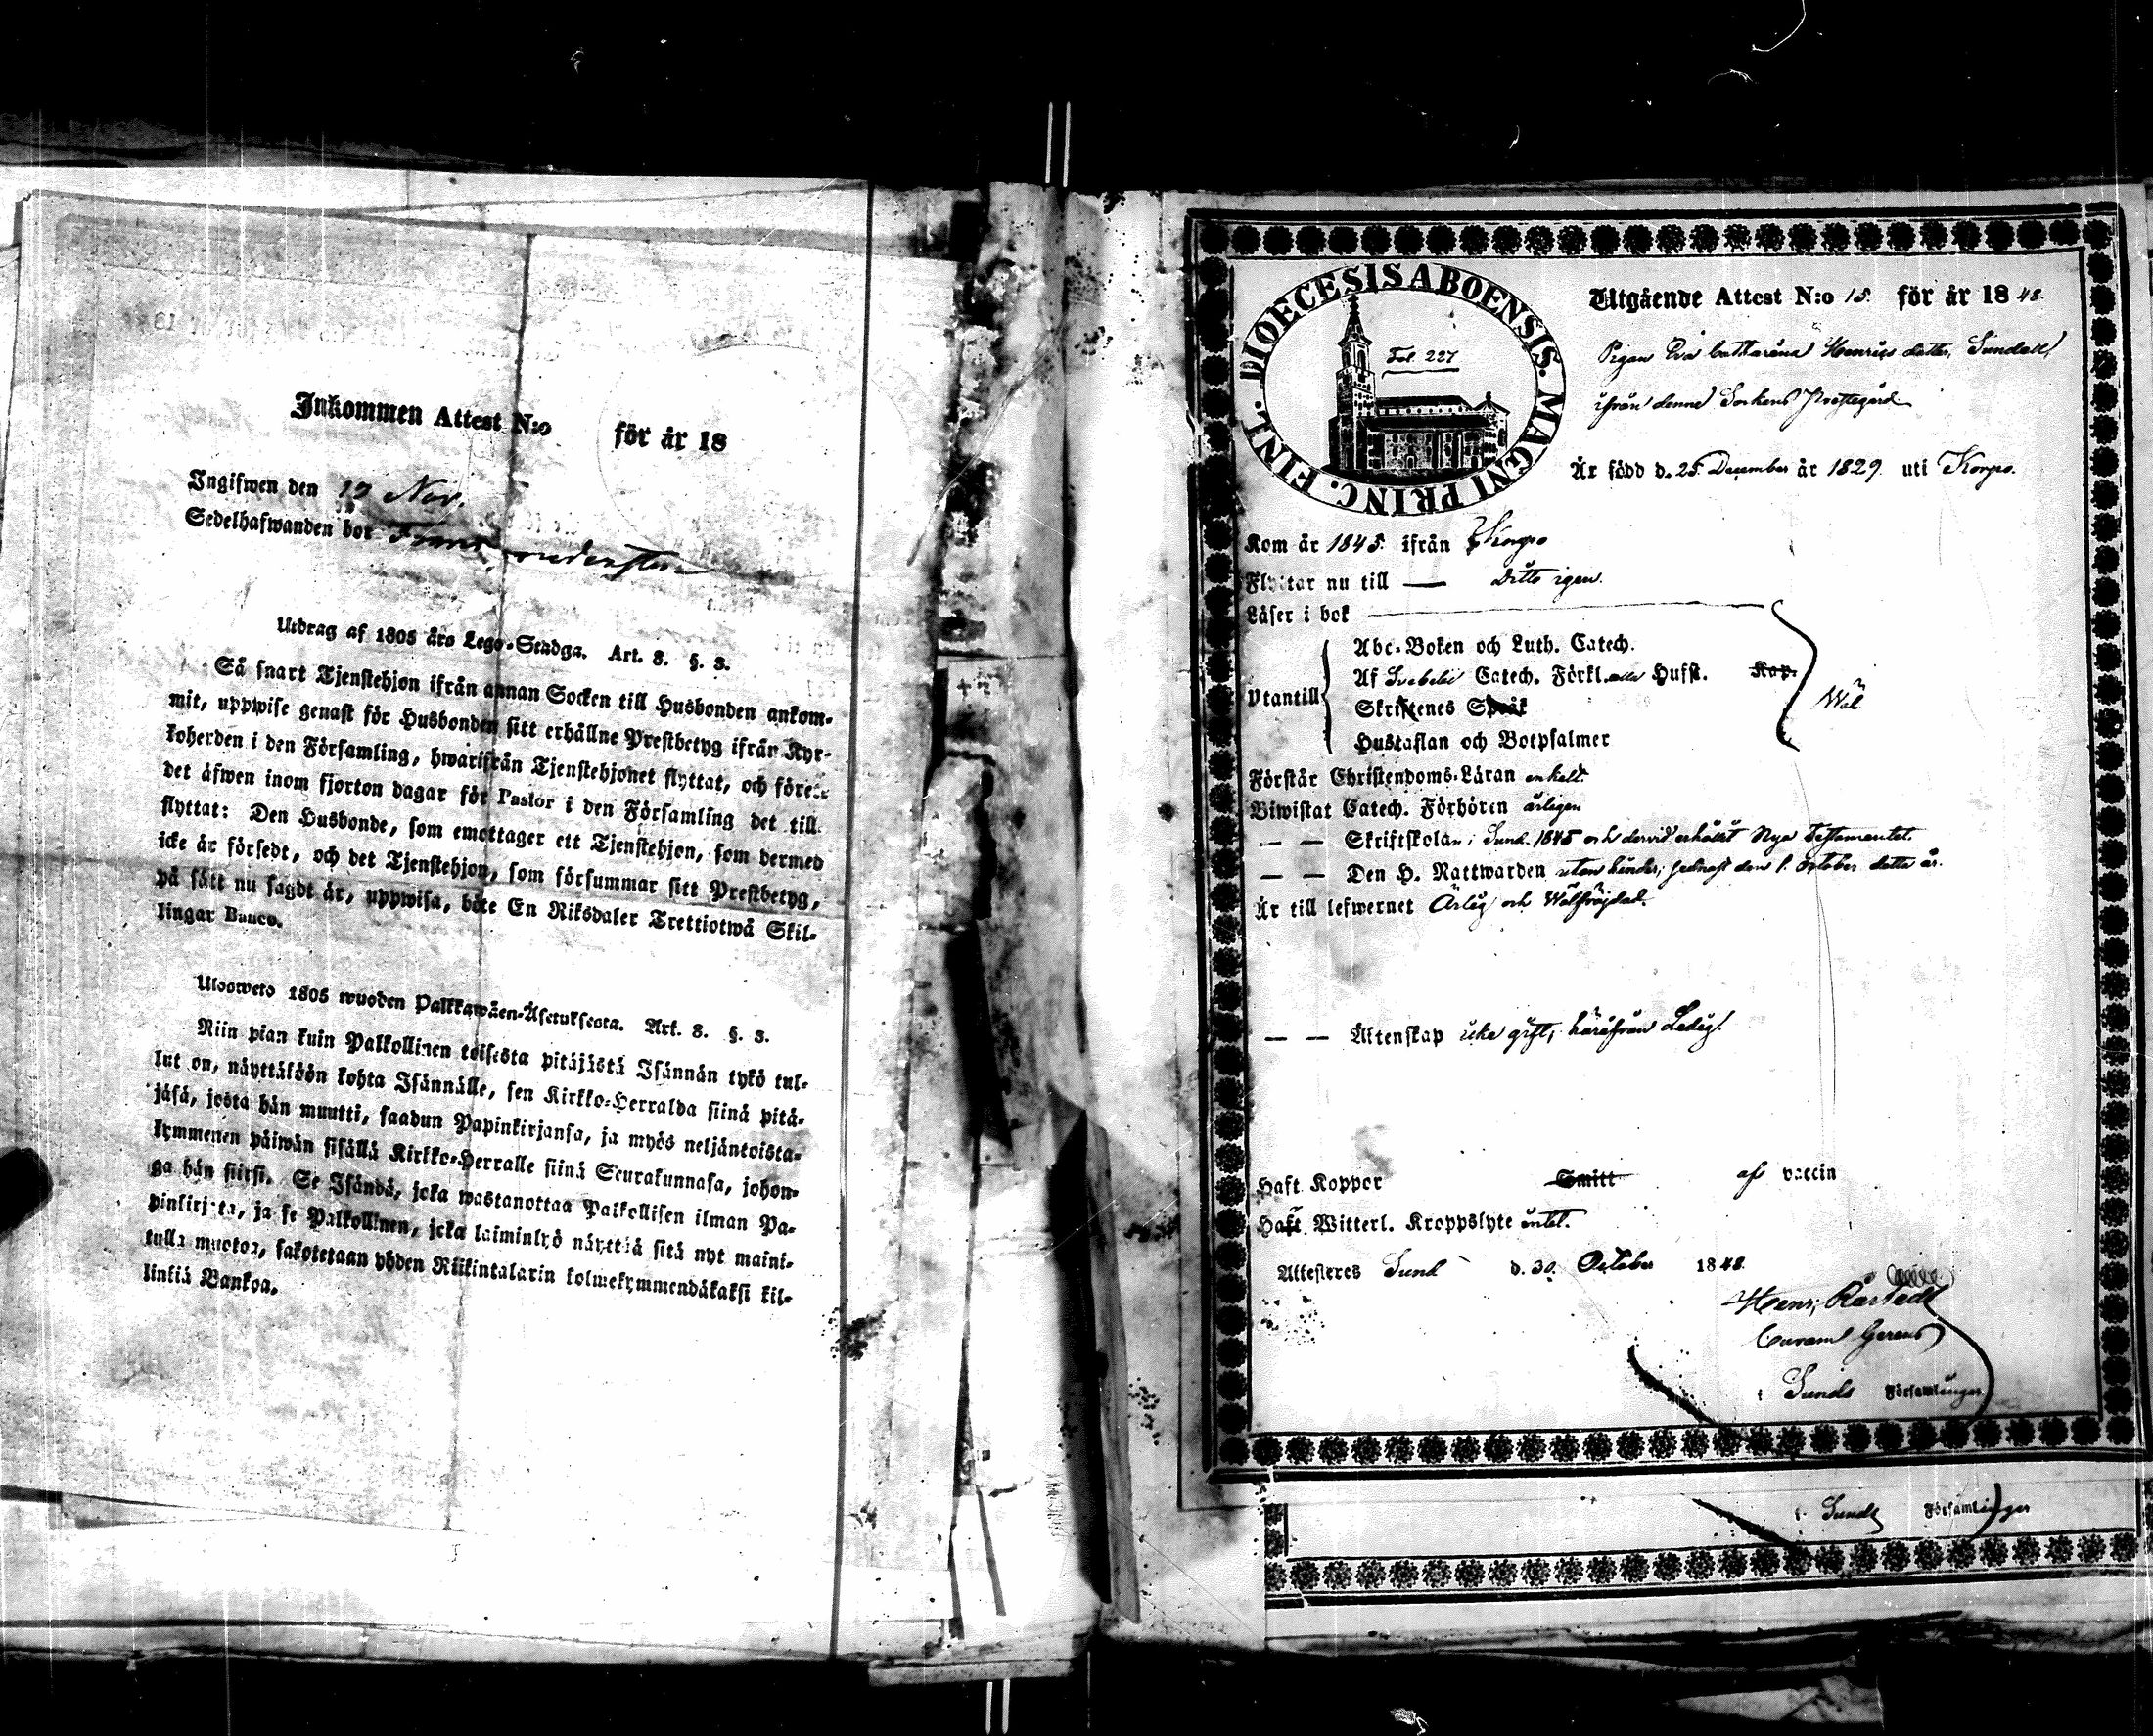 Inkommen Attest N:o för år 18
Ingifwen den 19 Nov.
Sedelhafwanden bor
Utdrag af 1805 års Lego-Stadga. Art. 8. §. 3.
Så snart Tjenstehjon ifrån annan Socken till Husbonden ankom-
mit, uppwise genast för Husbonden sitt erhållne Prestbetyg ifrån Kyr-
koherden i den Församling, hwarifrån Tjenstehjonet flyttat, och förete
det äfwen inom fjorton dagar för Pastor i den Församling det till
flyttat: Den Husbonde, som emottager ett Tjenstehjon, som dermed
icke är försedt, och det Tjenstehjon, som försummar sitt Prestbetyg,
på sätt nu sagdt är, uppwisa, böte En Riksdaler Trettiotwå Skil-
lingar Banco.
Ulosweto 1805 wuoden Palkkawäen-Asetuksesta. Art. 8. §. 3.
Niin pian kuin Palkollinen toisesta pitäjästä Isännän tykö tul-
lut on, näyttäköön kohta Isännälle, sen Kirkko-Herralda siinä pitä-
jäsä, josta hän muutti, saadun Papinkirjansa, ja myös neljäntoista-
kymmenen päiwän sisällä Kirkko-Herralle siinä Seurakunnasa, johon-
ga hän siirsi. Se Isändä, joka wastanottaa Palkollisen ilman Pa-
pinkirjata, ja se Palkollinen, joka laiminlyö näyttää sitä nyt maini-
tulla muotoa, sakotetaan yhden Riikintalarin kolmekymmendäkaksi kil-
linkiä Bankoa.
DIOECESIS ABOENSIS. MAGNI PRINC. FINL.
Fol. 227
Utgående Attest N:o 15. för år 1848.
Pigan Eva Catharina Henrics dotter Sundell
ifrån denne Sockens Prestegård
Är född d. 25 December år 1829. uti Korpo.
Kom år 1845. ifrån Korpo
Flyttar nu till — Ditto igen.
Läser i bok
Utantill
Abc-Boken och Luth. Catech.
Af Svebelii Catech. Förkl. eller Hufst. Kap.
Skriftenes Språk
Hustaflan och Botpsalmer
Wäl
Förstår Christendoms-Läran enkelt.
Biwistat Catech. Förhören årligen
— — Skriftskolan i Sund 1845 och dervid erhållit Nya Testamentet.
— — Den H. Nattwarden utan hinder, sednast den 1. October detta år.
Är till lefwernet Ärlig och Wälfrägdad.
— — Äktenskap icke gift, härifrån Ledig.
Haft Koppor Smitt af vaccin
Haft Witterl. Kroppslyte intet.
Attesteres Sund d. 30. October 1848.
Curam Gerens
i Sunds Församlingar
i Sunds Församlingar